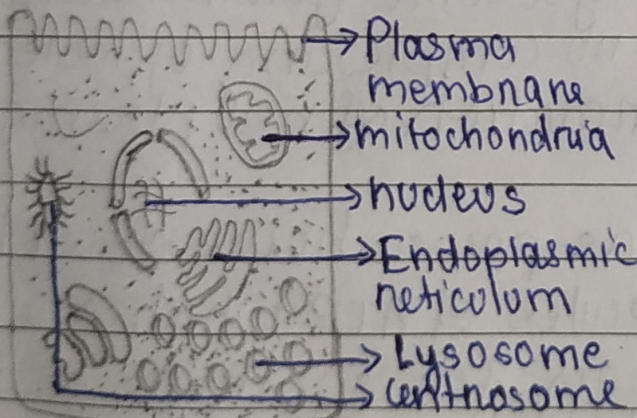 Plasma
membrane
mitochondria
nucleus
Endoplasmic
reticulum
Lysosome
Centrosome